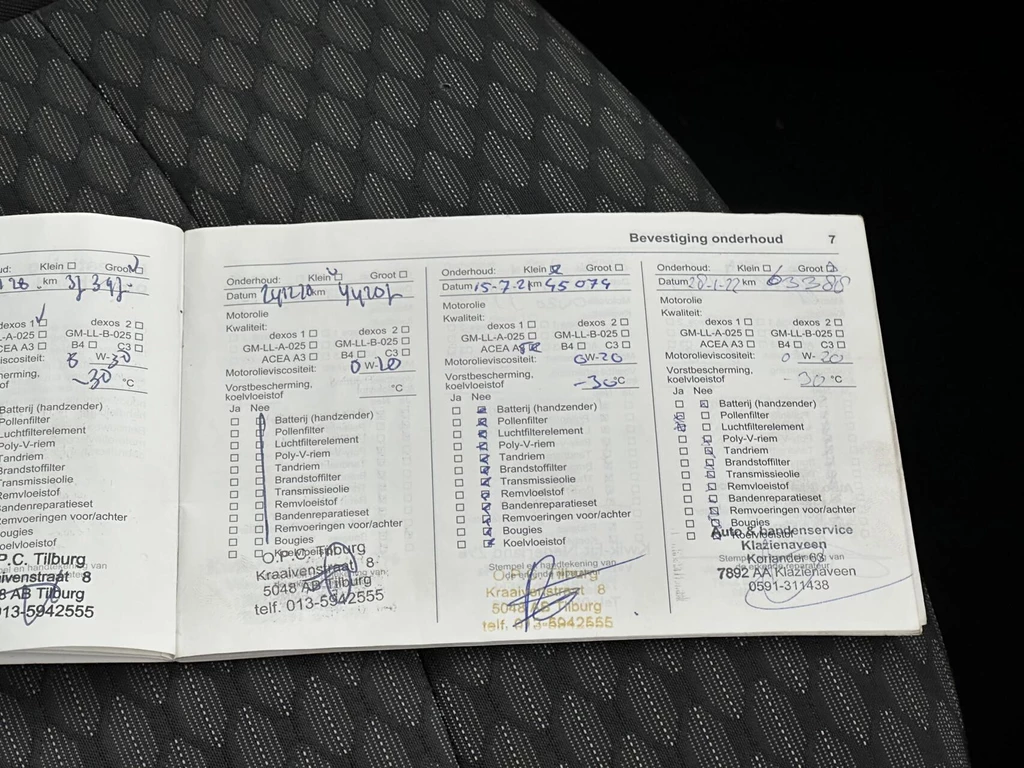 Bevestiging onderhoud 7
Klein □ Groot
km
dexos 1 dexos 2 □
GM-LL-B-025 □
B4 □ C3 □
W-30
-30 °C
Batterij (handzender)
Pollenfilter
Luchtfilterelement
Poly-V-riem
Tandriem
Brandstoffilter
Transmissieolie
Remvloeistof
Bandenreparatieset
Remvoeringen voor/achter
P.C. Tilburg
8
AB Tilburg
013-5942555
Onderhoud: Klein □ Groot □
Datum km
Motorolie
Kwaliteit:
dexos 1 □ dexos 2 □
GM-LL-A-025 □ GM-LL-B-025 □
ACEA A3 □ B4 □ C3 □
Motorolieviscositeit: 0 W-20
Vorstbescherming,
koelvloeistof °C
Ja Nee
Batterij (handzender)
Pollenfilter
Luchtfilterelement
Poly-V-riem
Tandriem
Brandstoffilter
Transmissieolie
Remvloeistof
Bandenreparatieset
Remvoeringen voor/achter
Bougies
Koelvloeistof
O.P.C. Tilburg
Kraaivenstraat 8
5048 AB Tilburg
telf. 013-5942555
Onderhoud: Klein □ Groot □
Datum 15-7-21 km 45079
Motorolie
Kwaliteit:
dexos 1 □ dexos 2 □
GM-LL-A-025 □ GM-LL-B-025 □
ACEA B4 □ C3 □
Motorolieviscositeit: 0W-20
Vorstbescherming,
koelvloeistof -30°C
Ja Nee
Batterij (handzender)
Pollenfilter
Luchtfilterelement
Poly-V-riem
Tandriem
Brandstoffilter
Transmissieolie
Remvloeistof
Bandenreparatieset
Remvoeringen voor/achter
Bougies
Koelvloeistof
Stempel en handtekening van
O.P.C. Tilburg
Kraaivenstraat 8
5048 AB Tilburg
telf. 013-5942555
Onderhoud: Klein □ Groot □
Datum 28-1-22 km 63388
Motorolie
Kwaliteit:
dexos 1 □ dexos 2 □
GM-LL-A-025 □ GM-LL-B-025 □
ACEA A3 □ B4 □ C3 □
Motorolieviscositeit: 0 W-20
Vorstbescherming,
koelvloeistof -30 °C
Ja Nee
Batterij (handzender)
Pollenfilter
Luchtfilterelement
Poly-V-riem
Tandriem
Brandstoffilter
Transmissieolie
Remvloeistof
Bandenreparatieset
Remvoeringen voor/achter
Bougies
Koelvloeistof
Auto & bandenservice
Klazienaveen
Koriander 63
7892 AA Klazienaveen
0591-311438